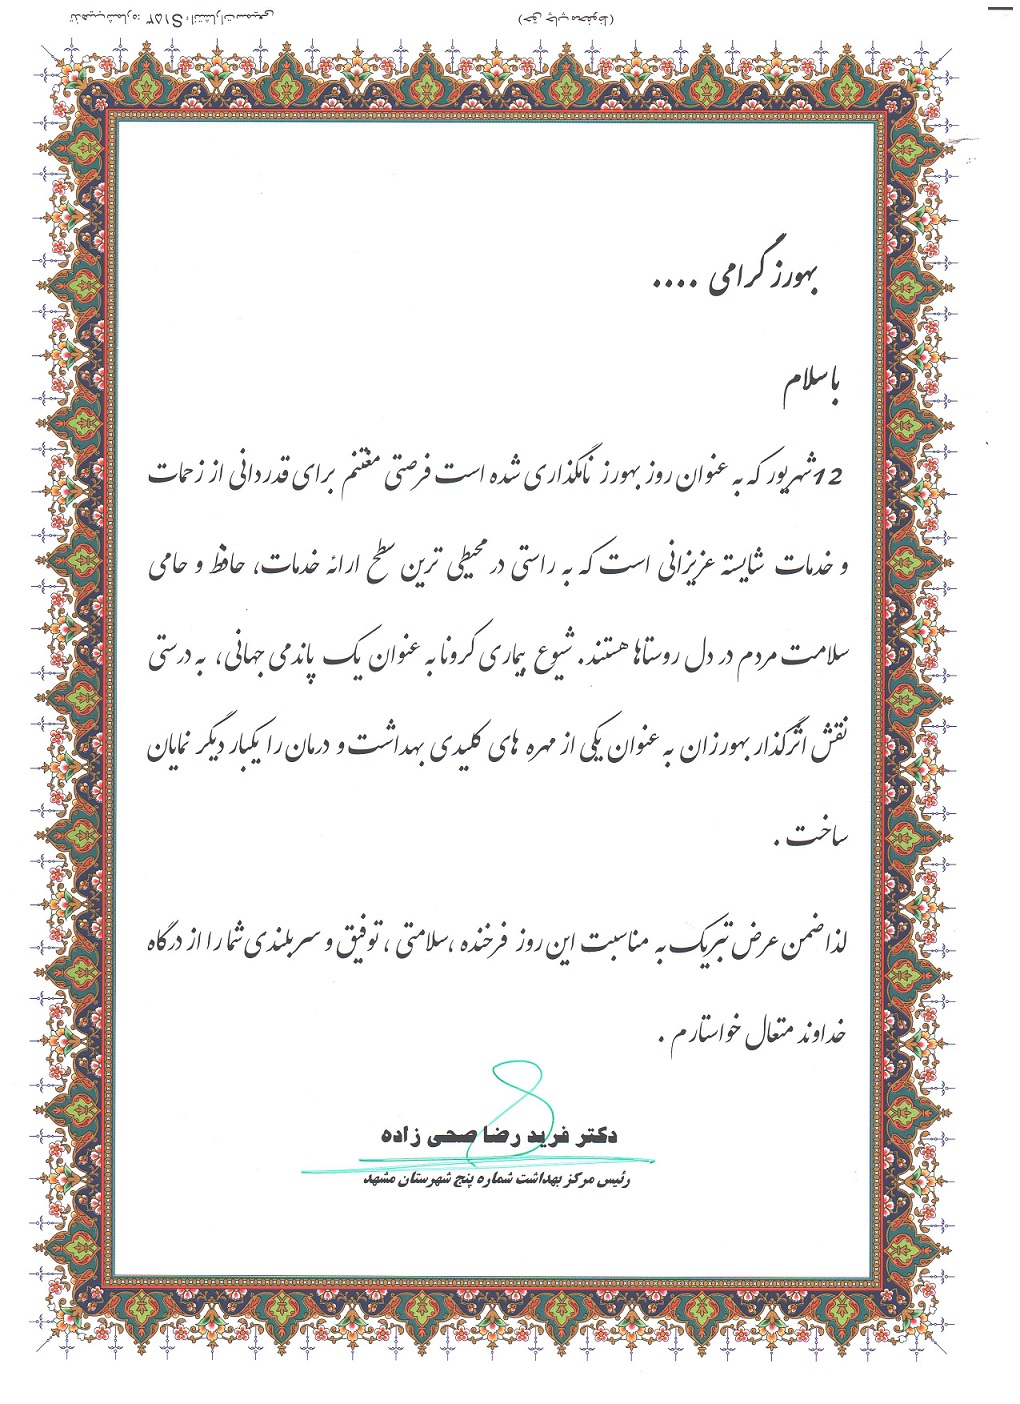 بهورز گرامی ....
با سلام
12 شهریور که به عنوان روز بهورز نامگذاری شده است فرصتی مغتنم برای قدردانی از زحمات
و خدمات شایسته عزیزانی است که به راستی در محیطی ترین سطح ارائه خدمات، حافظ و حامی
سلامت مردم در دل روستاها هستند. شیوع بیماری کرونا به عنوان یک پاندمی جهانی، به درستی
نقش اثرگذار بهورزان به عنوان یکی از مهره های کلیدی بهداشت و درمان را یکبار دیگر نمایان
ساخت .
لذا ضمن عرض تبریک به مناسبت این روز فرخنده ،سلامتی ، توفیق و سربلندی شما را از درگاه
خداوند متعال خواستارم .
دکتر فرید رضا صحی زاده
رئیس مرکز بهداشت شماره پنج شهرستان مشهد
(حق چاپ محفوظ)
تذهیب شماره: S۱۵۳ انتشارات سمیعی